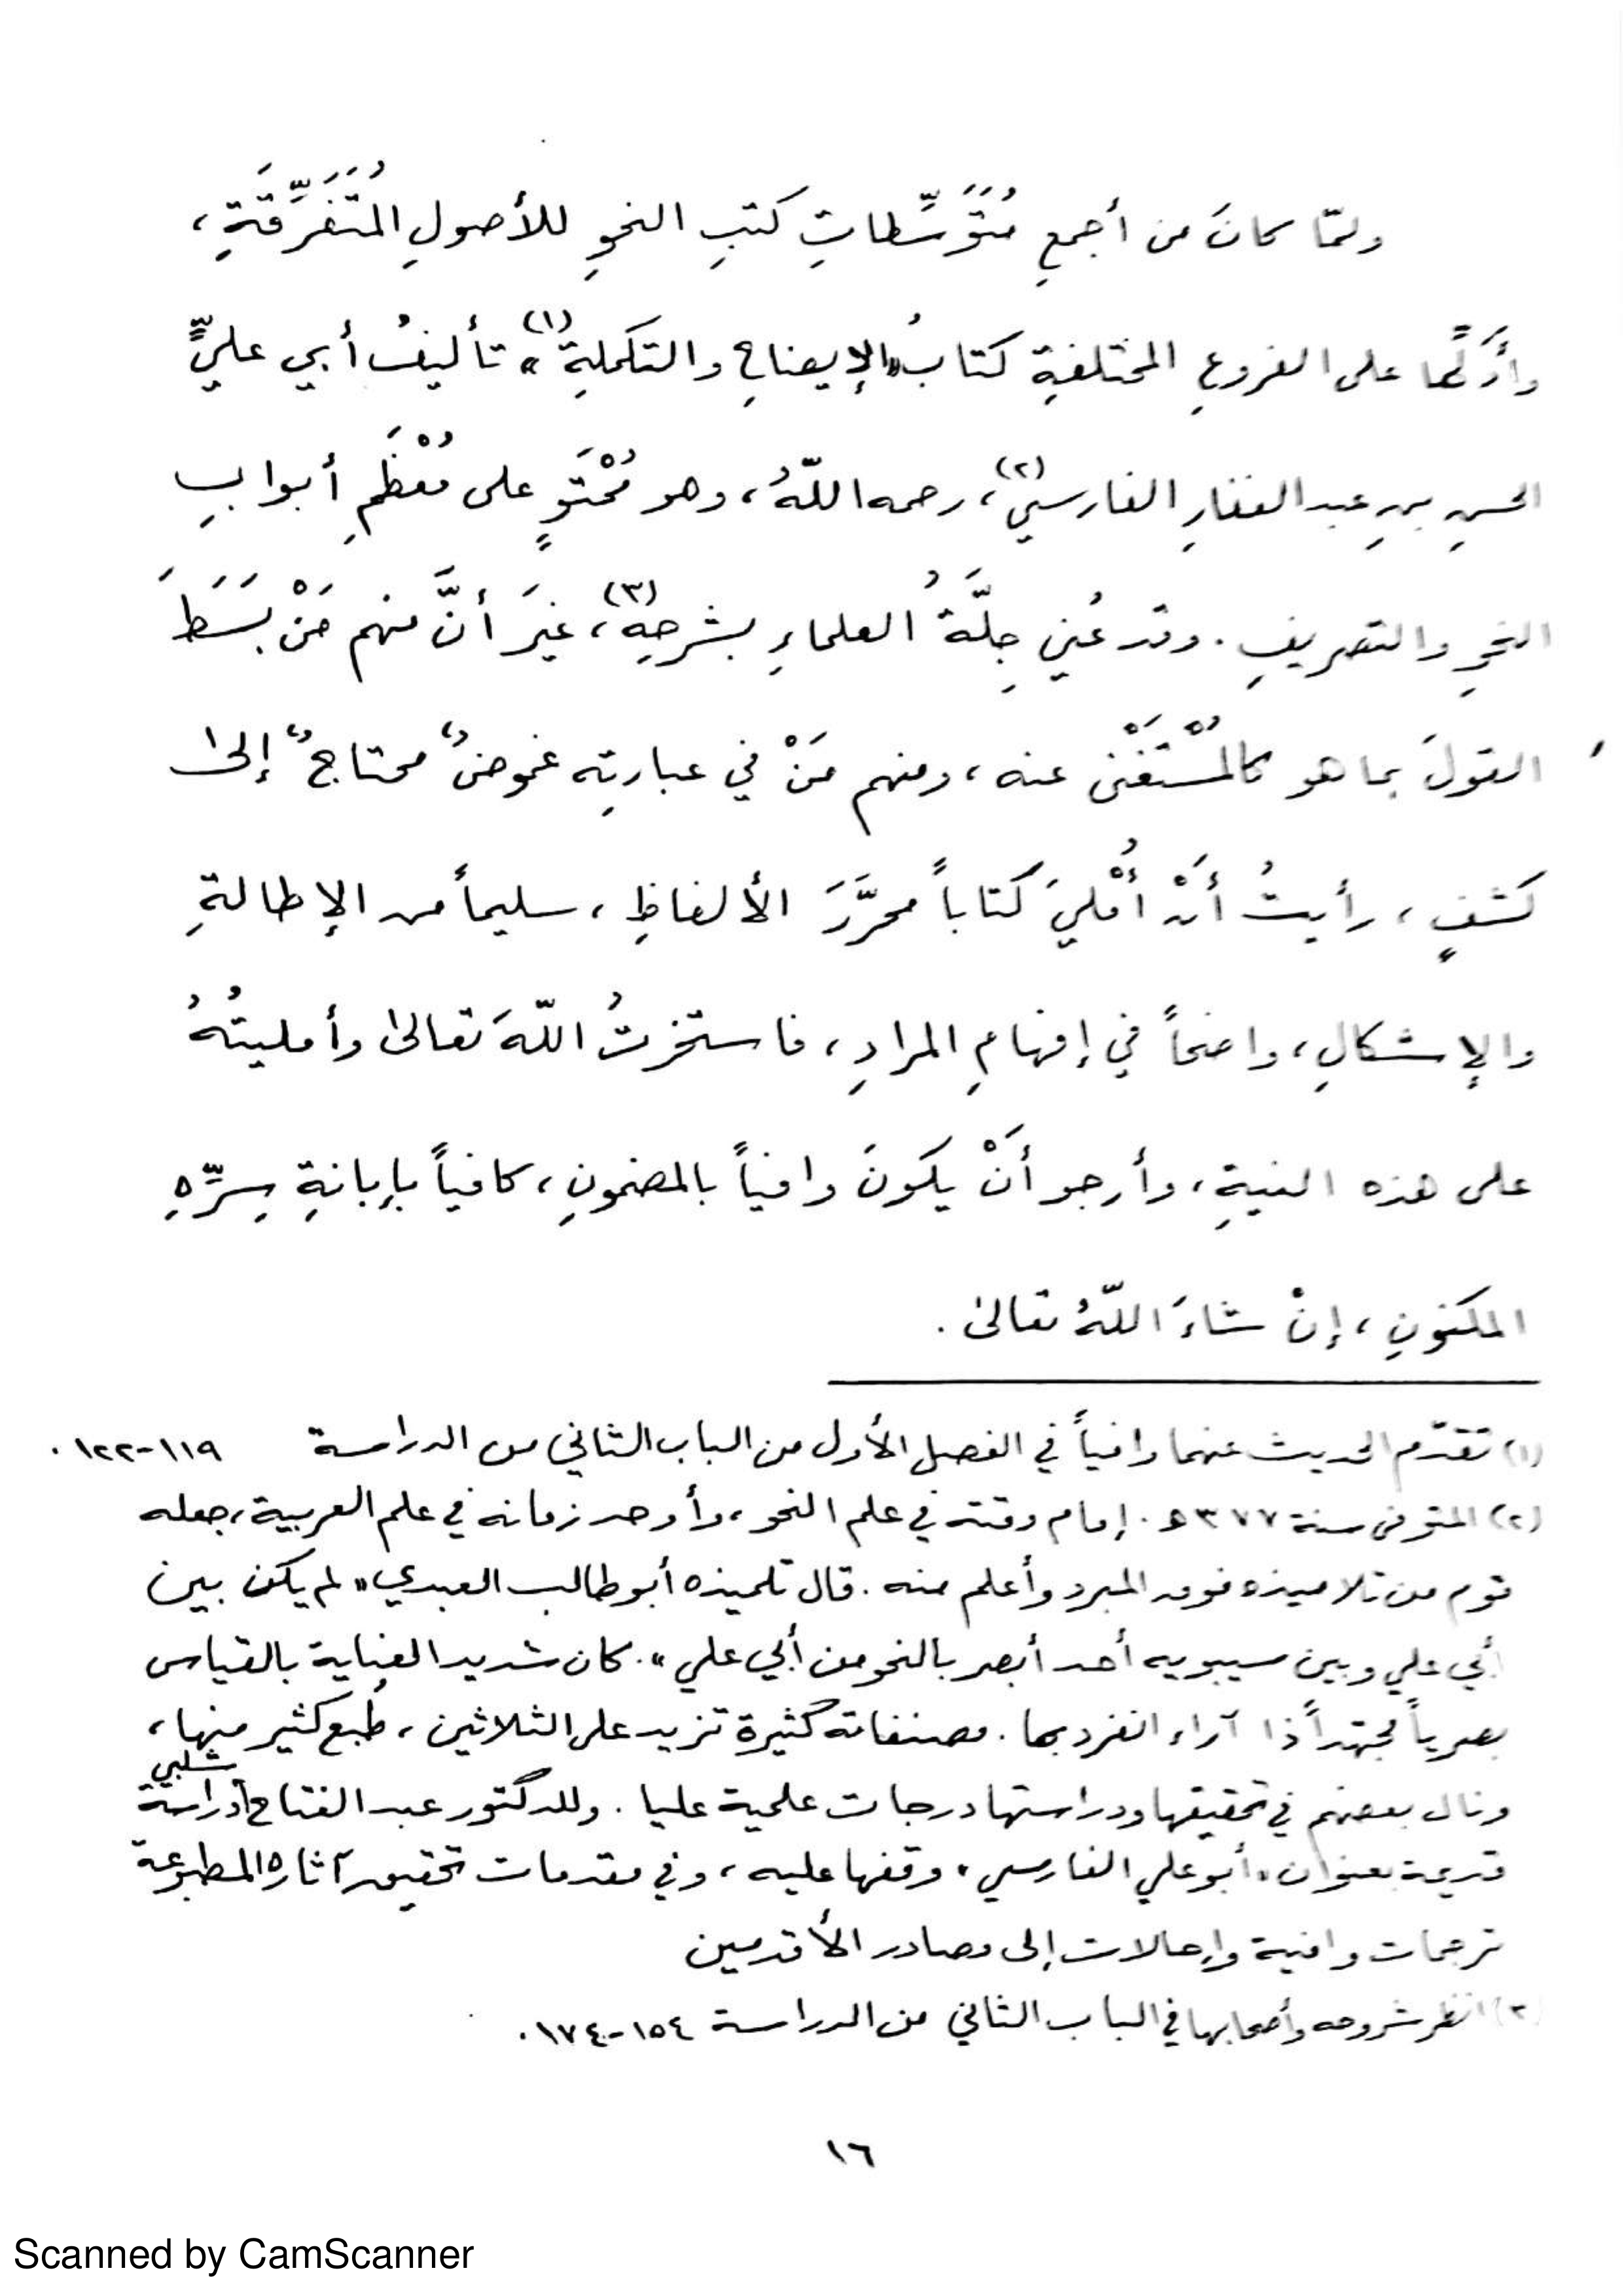 ولمّا كانَ من أجمعِ مُتَوَسِّطاتِ كتبِ النحوِ للأصولِ المُتَفَرِّقَةِ،
وأَدَلِّها على الفروعِ المختلفةِ كتابُ «الإيضاحِ والتكملةِ»(١) تأليفُ أبي عليٍّ
الحسنِ بنِ عبد الغفارِ الفارسيِّ(٢)، رحمه اللّهُ، وهو مُحْتَوٍ على مُعْظَمِ أبوابِ
النحوِ والتصريفِ. وقد عُنِي جِلَّةُ العلماءِ بشرحِهِ(٣)، غيرَ أنَّ منهم مَنْ بَسَطَ
القولَ بما هو كالمُسْتَغْنى عنه، ومنهم مَنْ في عبارتِه غموضٌ محتاجٌ إلى
كشفٍ، رأيتُ أَنْ أُمْليَ كتاباً محرَّرَ الألفاظِ، سليماً من الإطالةِ
والإشكالِ، واضحاً في إفهامِ المرادِ، فاستخرتُ اللّهَ تعالى وأمليتُهُ
على هذه النيةِ، وأرجو أَنْ يكونَ وافياً بالمضمونِ، كافياً بإبانةِ سِرِّهِ
المكنونِ، إنْ شاءَ اللّهُ تعالى.
(١) تقدّم الحديث عنهما وافياً في الفصل الأول من الباب الثاني من الدراسة ١١٩-١٢٢.
(٢) المتوفى سنة ٣٧٧ هـ. إمام وقته في علم النحو، وأوحد زمانه في علم العربية، جعله
قوم من تلاميذه فوق المبرد وأعلم منه. قال تلميذه أبو طالب العبدي «لم يكن بين
أبي علي وبين سيبويه أحد أبصر بالنحو من أبي علي». كان شديد العناية بالقياس
بصرياً مجتهداً ذا آراء انفرد بها. مصنفاته كثيرة تزيد على الثلاثين، طُبع كثير منها،
ونال بعضهم في تحقيقها ودراستها درجات علمية عليا. وللدكتور عبد الفتاح شلبي دراسة
قديمة بعنوان «أبو علي الفارسي» وقفها عليه، وفي مقدمات تحقيق آثاره المطبوعة
ترجمات وافية وإحالات إلى مصادر الأقدمين
(٣) انظر شروحه وأصحابها في الباب الثاني من الدراسة ١٥٤-١٧٤.
١٦
Scanned by CamScanner